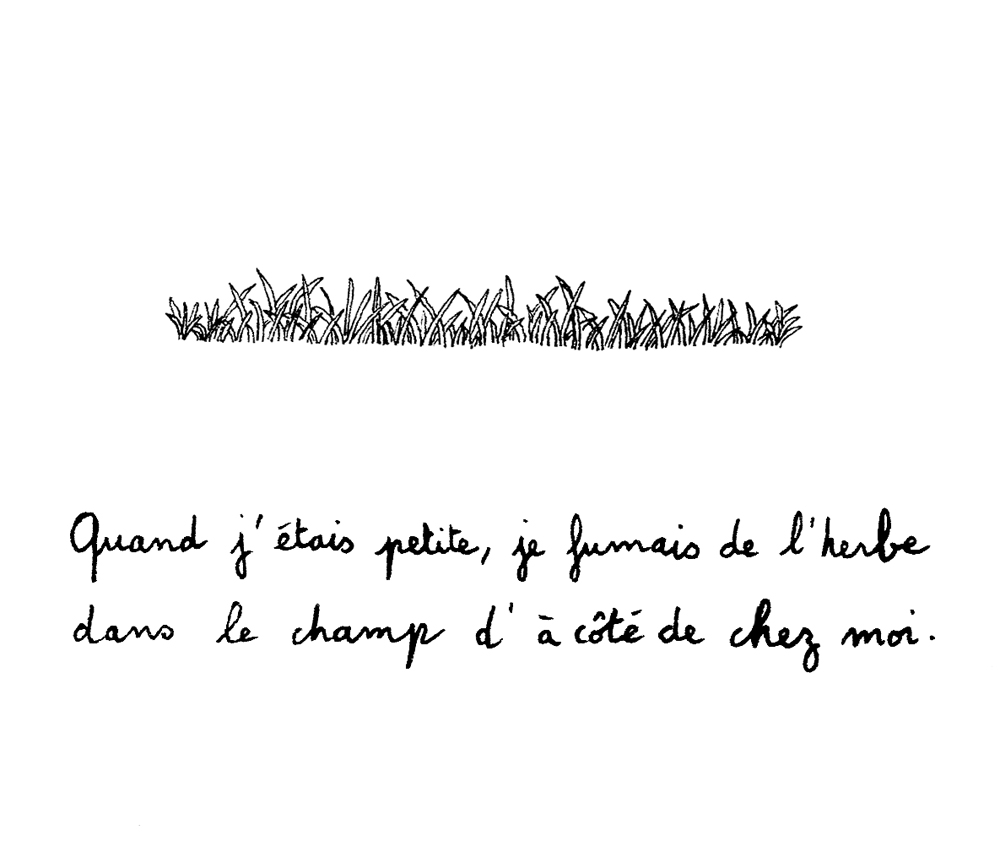 Quand j'étais petite, je fumais de l'herbe
dans le champ d'à côté de chez moi.